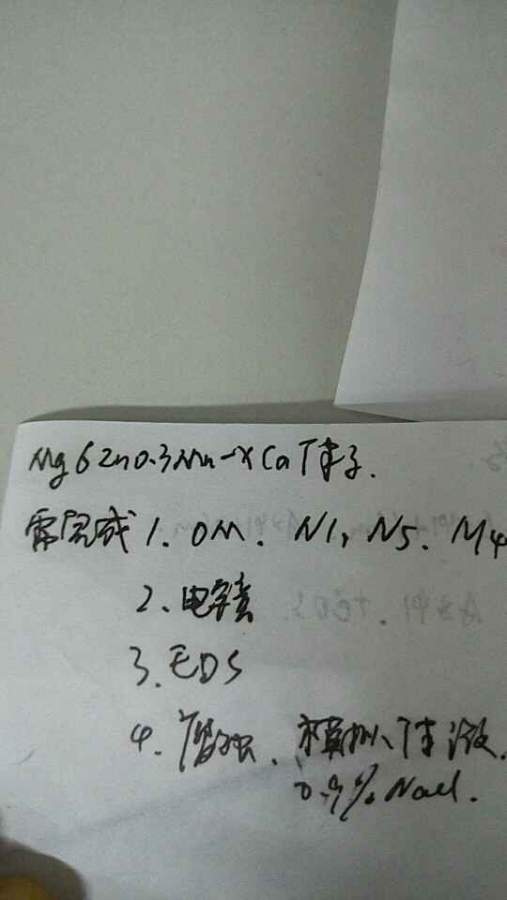 Mg6Zn0.3Mn-xCa体系.
需完成 1. OM. N1, N5. M4
2. 电镜
3. EDS
4. 腐蚀、模拟体液.
0.9% NaCl.